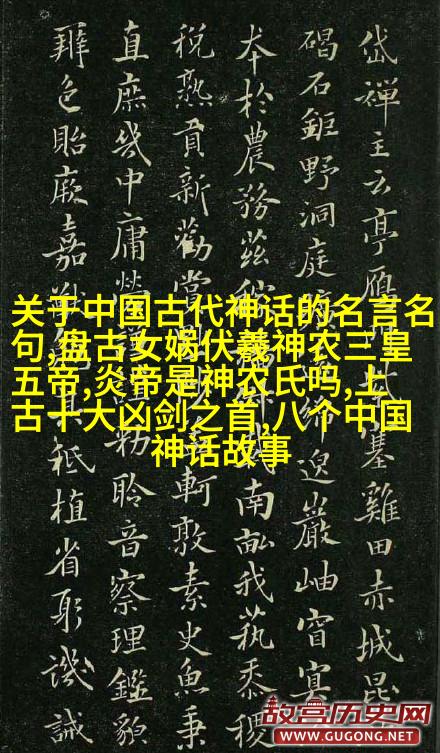 岱禪主云亭鴈塞雞田赤城昆
碣石鉅野洞庭曠綿邈巖岫窅冥
本於農務茲稼載南畝我藝黍稷
稅熟貢新勸賞軻敦素史魚秉
直庶幾中庸勞謹勑聆音察理鑑貌
辨色貽厥嘉猷其祗植省躬譏誡
关于中国古代神话的名言名
句,盘古女娲伏羲神农三皇
五帝,炎帝是神农氏吗,上
古十大凶剑之首,八个中国
神话故事
故宫历史网
WWW.GUGONG.NET